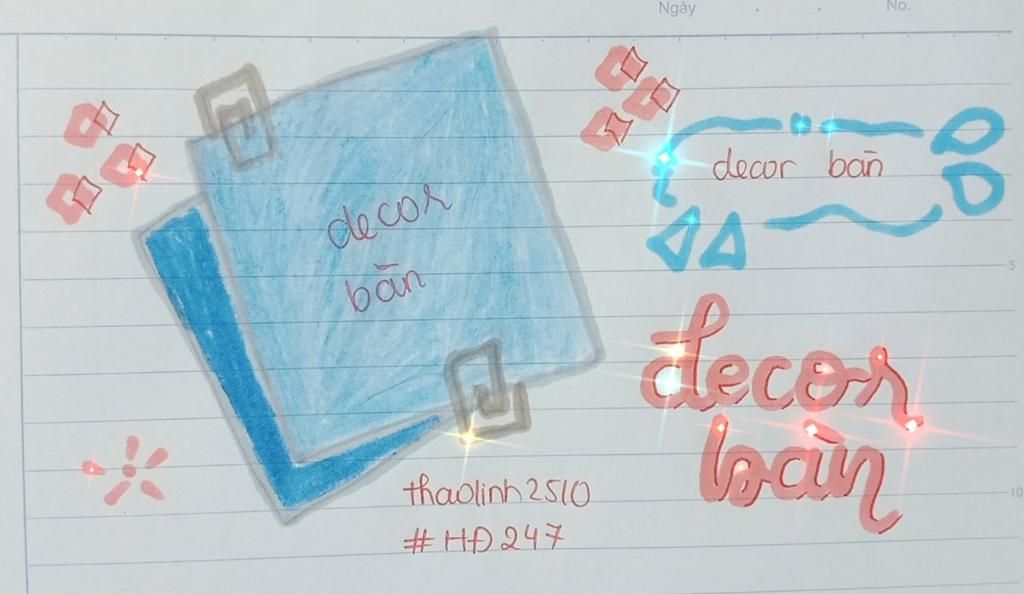 Ngày No.
decor
bàn
decor bàn
decor
bàn
thaolinh2510
#HĐ247
5
10